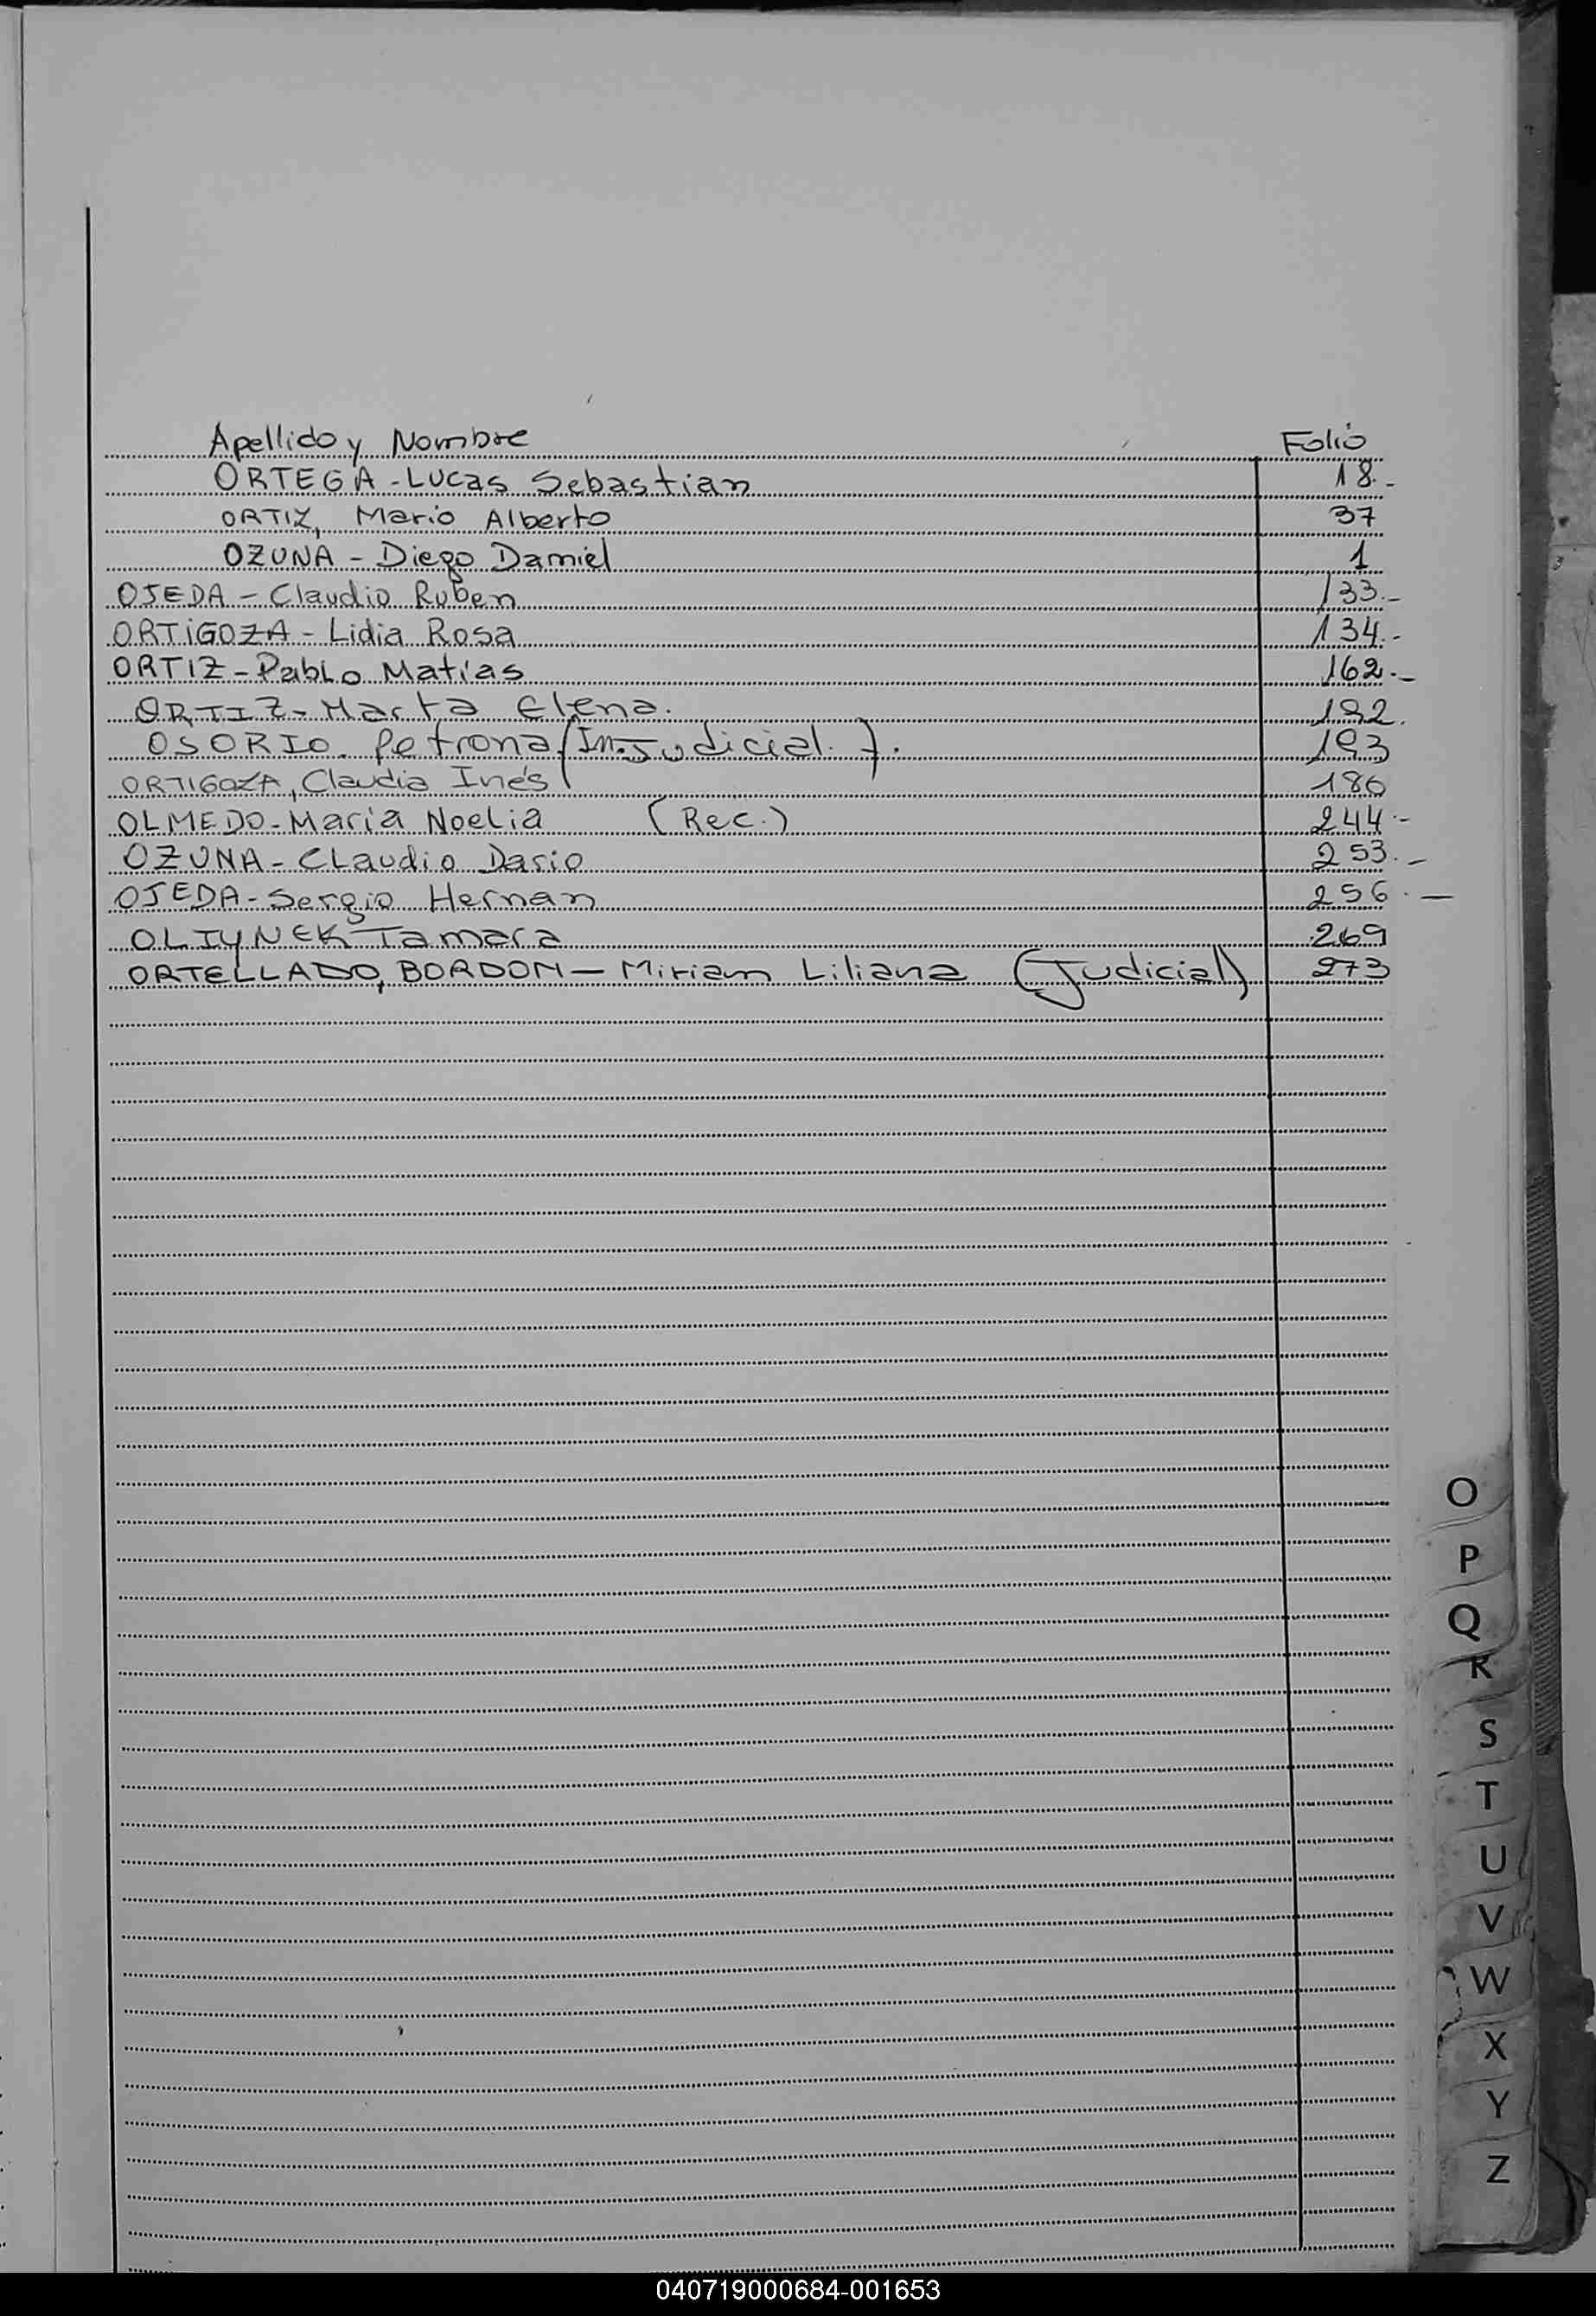 Apellido y Nombre Folio
ORTEGA - Lucas Sebastian 18.-
ORTIZ, Mario Alberto 37
OZUNA - Diego Damiel 1
OJEDA - Claudio Ruben 133.-
ORTIGOZA - Lidia Rosa 134.-
ORTIZ - Pablo Matías 162.-
ORTIZ - Marta Elena. 192.
OSORIO - Petrona (In. Judicial.). 193
ORTIGOZA, Claudia Inés 186
OLMEDO - María Noelia (Rec.) 244.-
OZUNA - Claudio Dario 253.-
OJEDA - Sergio Hernan 256.-
OLIYNEK Tamara 269
ORTELLADO, BORDON - Miriam Liliana (Judicial) 273
O
P
Q
R
S
T
U
V
W
X
Y
Z
040719000684-001653